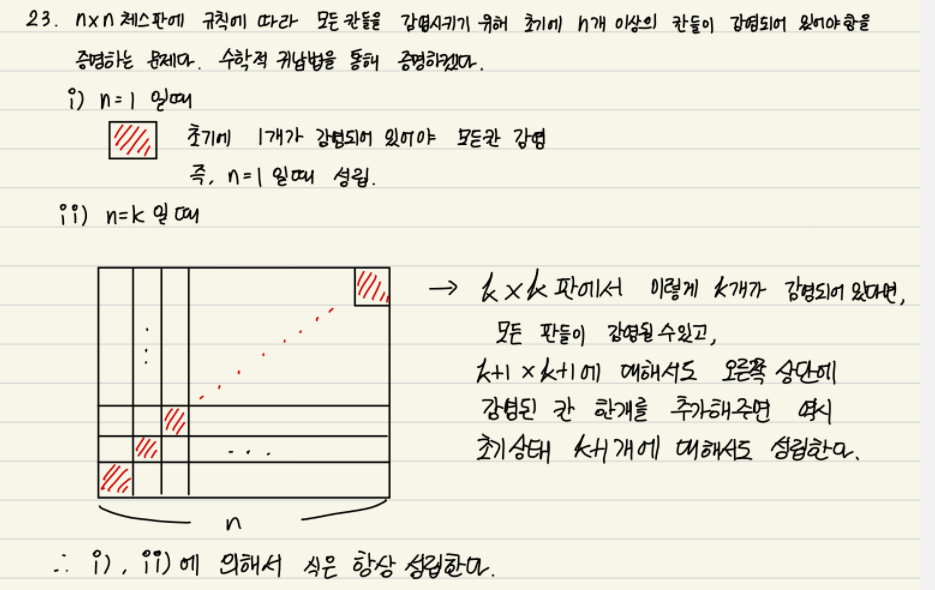 23. n×n 체스판에 규칙에 따라 모든 칸들을 감염시키기 위해 초기에 n개 이상의 칸들이 감염되어 있어야 함을
증명하는 문제다. 수학적 귀납법을 통해 증명하겠다.
i) n=1 일때
초기에 1개가 감염되어 있어야 모든칸 감염
즉, n=1 일때 성립.
ii) n=k 일 때
→ k×k 판에서 이렇게 k개가 감염되어 있다면,
모든 판들이 감염될 수 있고,
k+1 × k+1에 대해서도 오른쪽 상단에
감염된 칸 한개를 추가해주면 역시
초기상태 k+1개에 대해서도 성립한다.
n
∴ i), ii)에 의해서 식은 항상 성립한다.